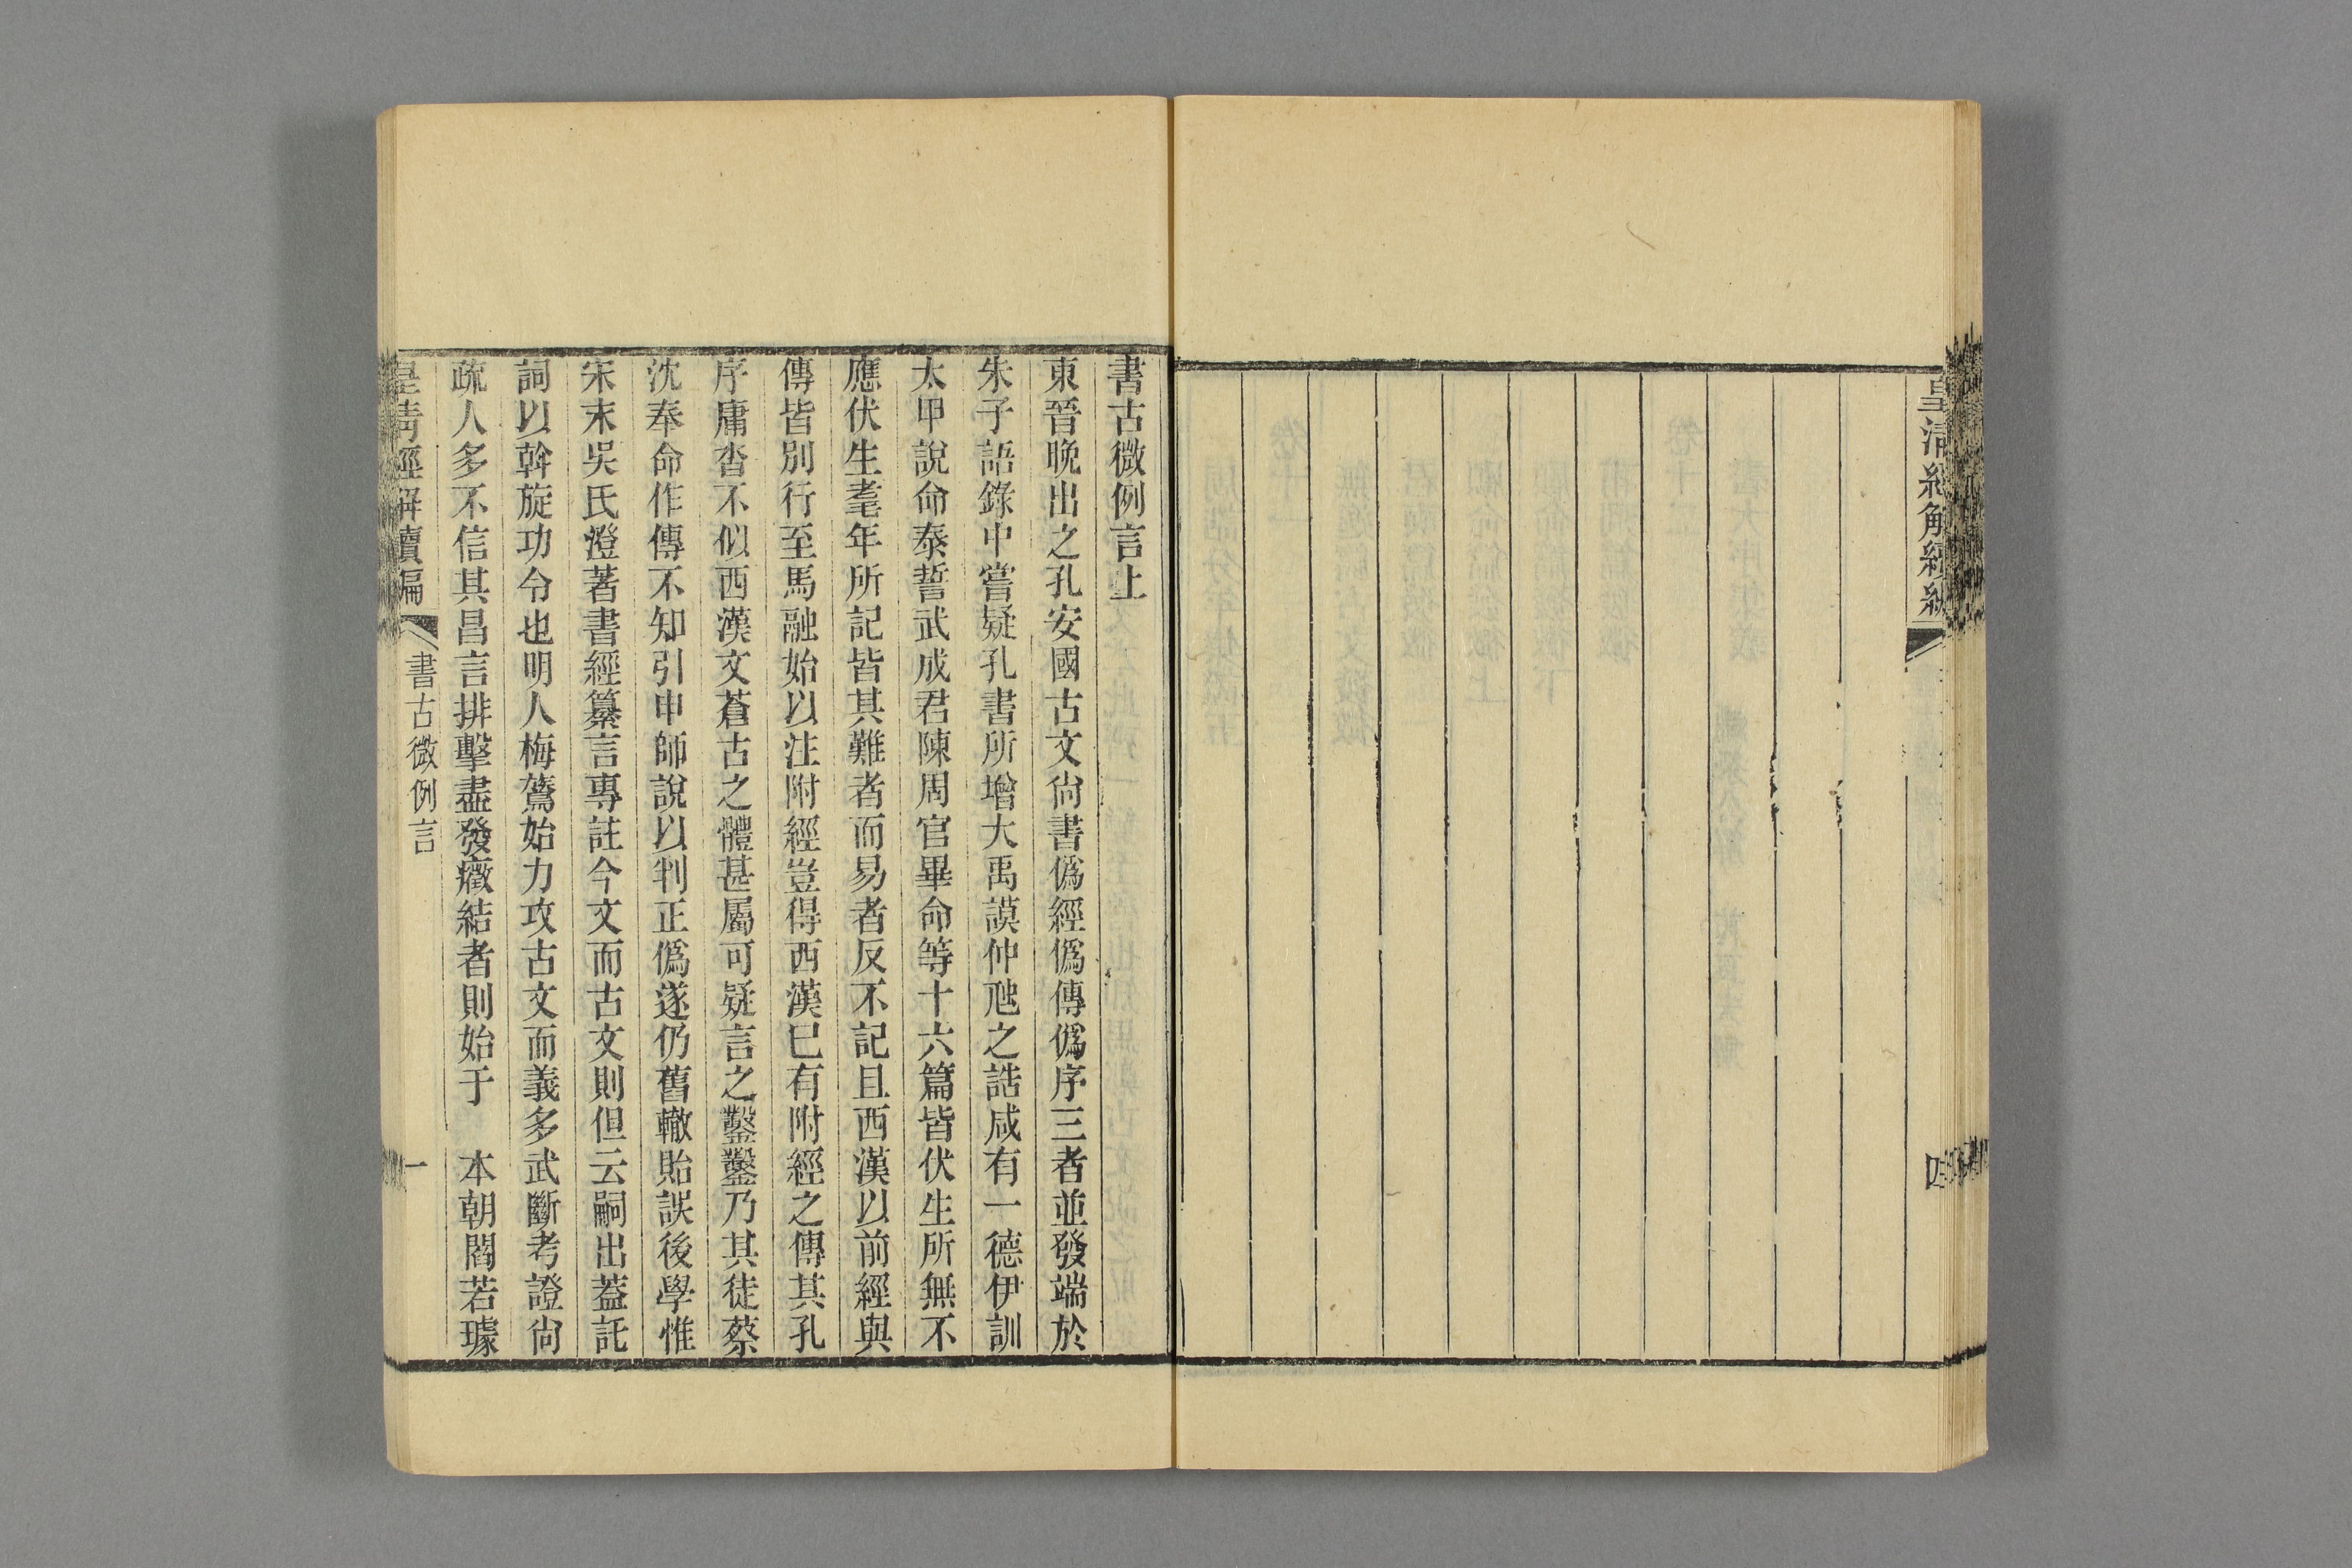 皇清經解續編
四
書古微例言上
東晉晚出之孔安國古文尙書僞經僞傳僞序三者並發端於
朱子語錄中嘗疑孔書所增大禹謨仲虺之誥咸有一德伊訓
太甲說命泰誓武成君陳周官畢命等十六篇皆伏生所無不
應伏生耄年所記皆其難者而易者反不記且西漢以前經與
傳皆別行至馬融始以注附經豈得西漢已有附經之傳其孔
序庸沓不似西漢文蒼古之體甚屬可疑言之鑿鑿乃其徒蔡
沈奉命作傳不知引申師說以判正僞遂仍舊轍貽誤後學惟
宋末吳氏澄著書經纂言專註今文而古文則但云嗣出蓋託
詞以斡旋功令也明人梅鷟始力攻古文而義多武斷考證尙
疏人多不信其昌言排擊盡發癥結者則始于　本朝閻若璩
皇清經解續編
書古微例言
一